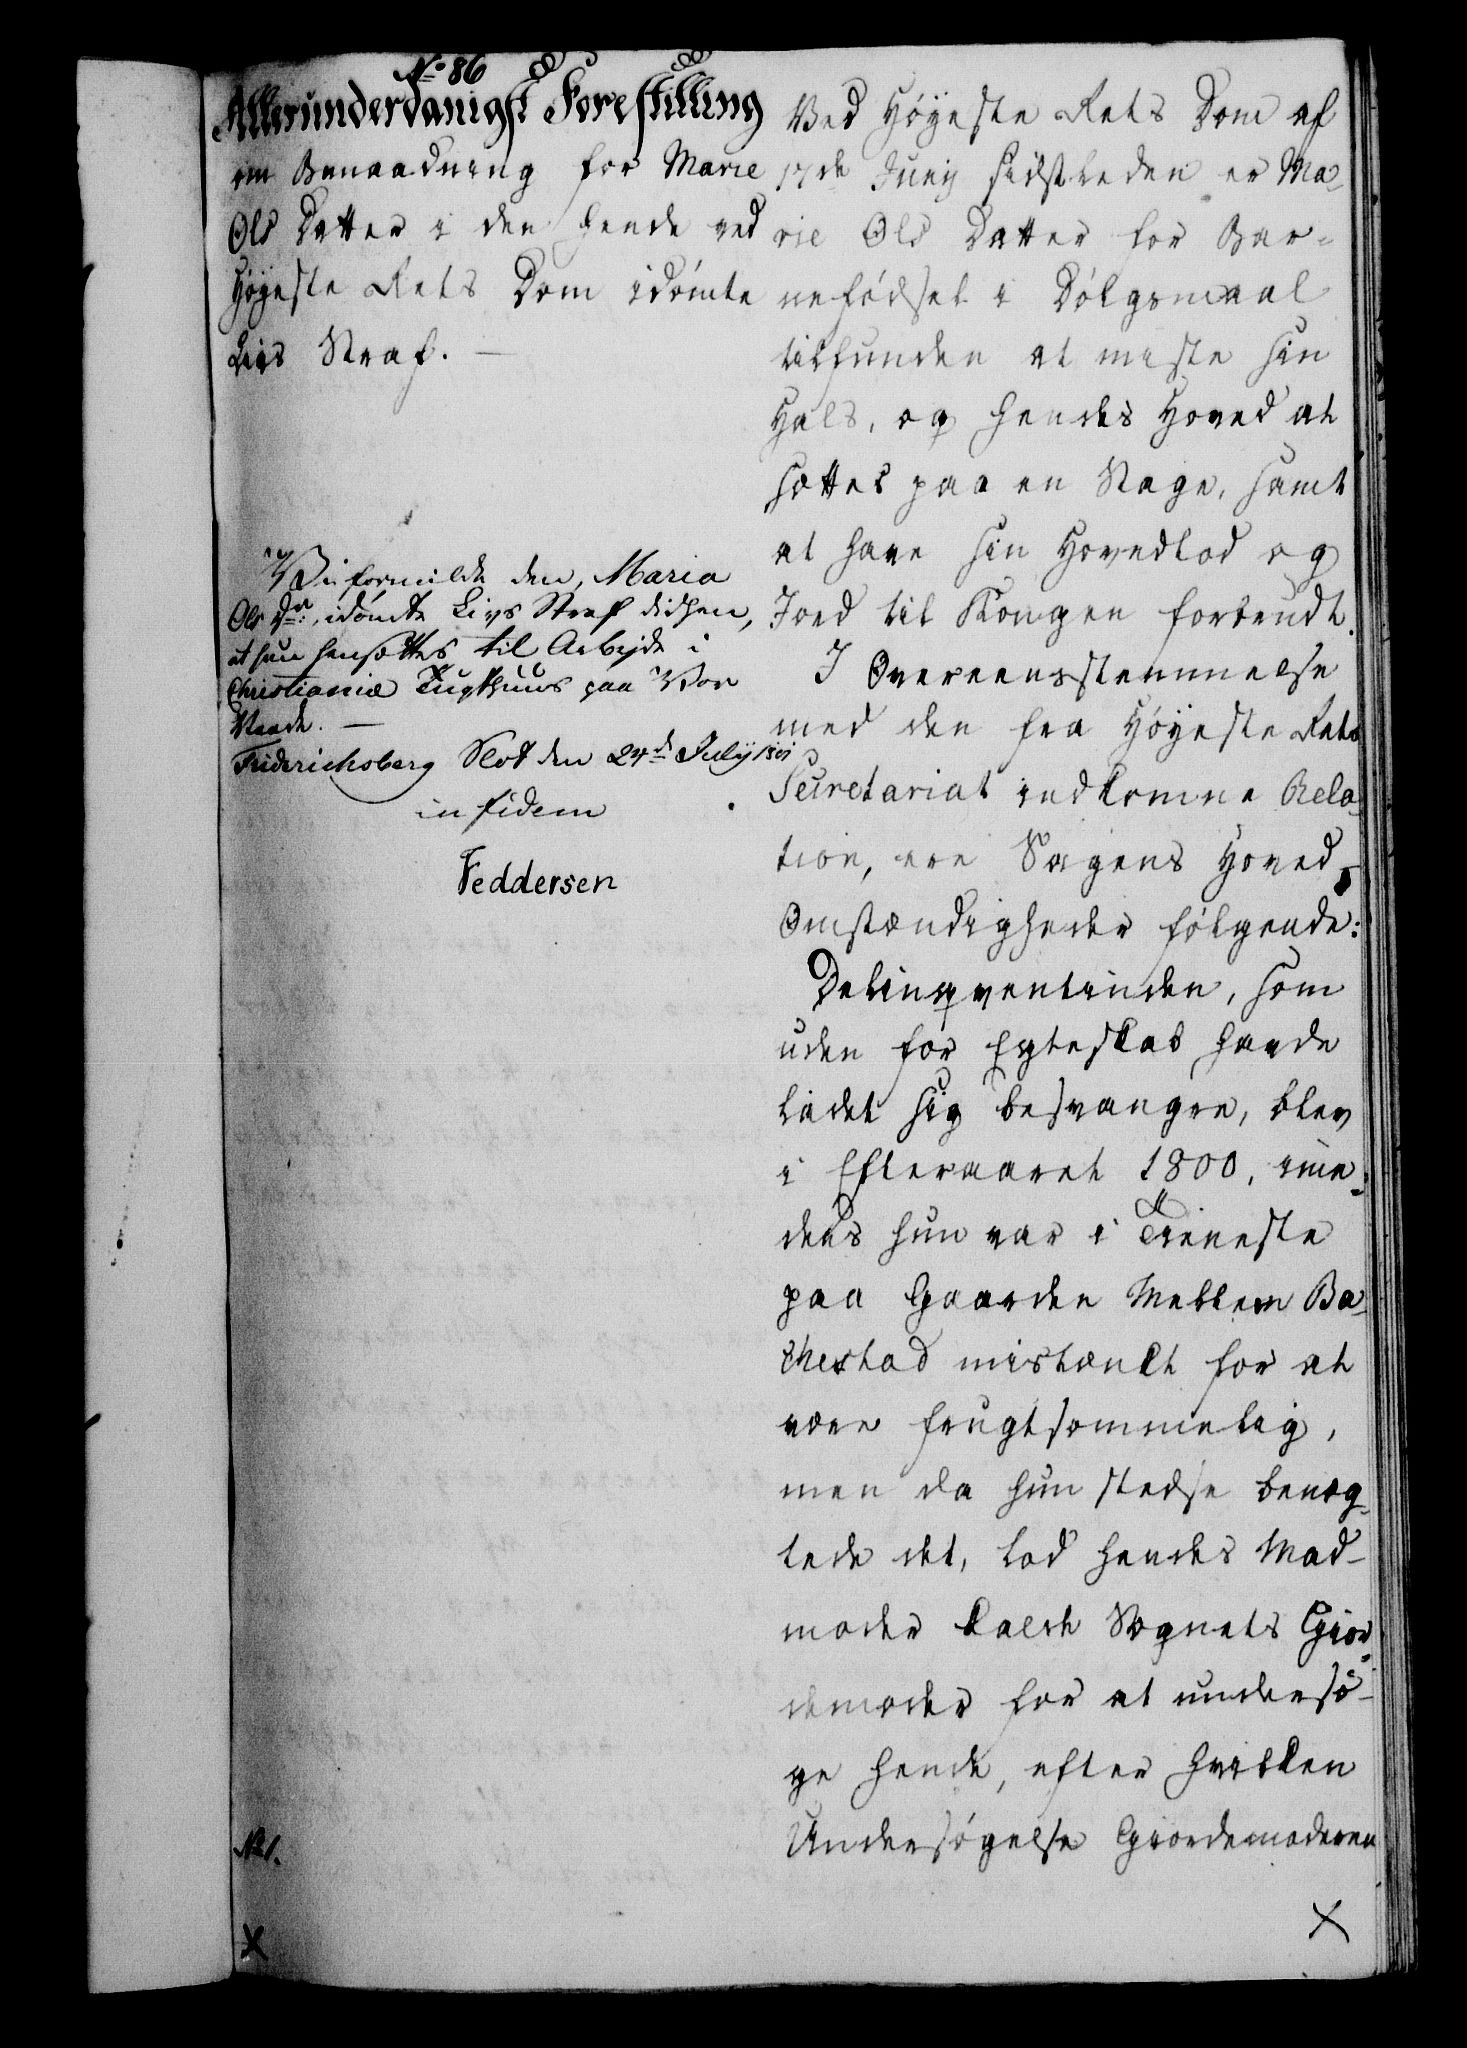 No 86
Allerunderdanigst Forestilling
om Benaadning for Marie
Ols Datter i den hende ved
Høyeste Rets Dom idømte
Livs Straf. —
Vi formilde den, Maria
Ols Dr: idømte Livs Straf didhen,
at hun hensættes til Arbeyde i
Christianiæ Tugthuus paa Vor
Naade. —
Friderichsberg Slot den 24de Julij 1801
in fidem
Feddersen
No 1.
Ved Høyeste Rets Dom af
17de Junij sidstleden er Ma-
rie Ols Datter for Bar-
nefødsel i Dølgsmaal
tilfunden at miste sin
Hals, og hendes Hoved at
sættes paa en Stage, samt
at have sin Hovedlod og
Jord til Kongen forbrudt.
I Overeensstemmelse
med den fra Høyeste Rets
Secretariat indkomne Rela-
tion, ere Sagens Hoved-
Omstændigheder følgende:
Delinqventinden, som
uden for Egteskab havde
ladet sig besvangre, blev
i Efteraaret 1800, ime-
dens hun var i Tieneste
paa Gaarden Mellem Ba-
chestad mistænkt for at
være frugtsommelig,
men da hun stedse benæg-
tede det, lod hendes Mad-
moder kalde Sognets Gior-
demoder for at undersø-
ge hende, efter hvilken
Undersøgelse Giordemoderen